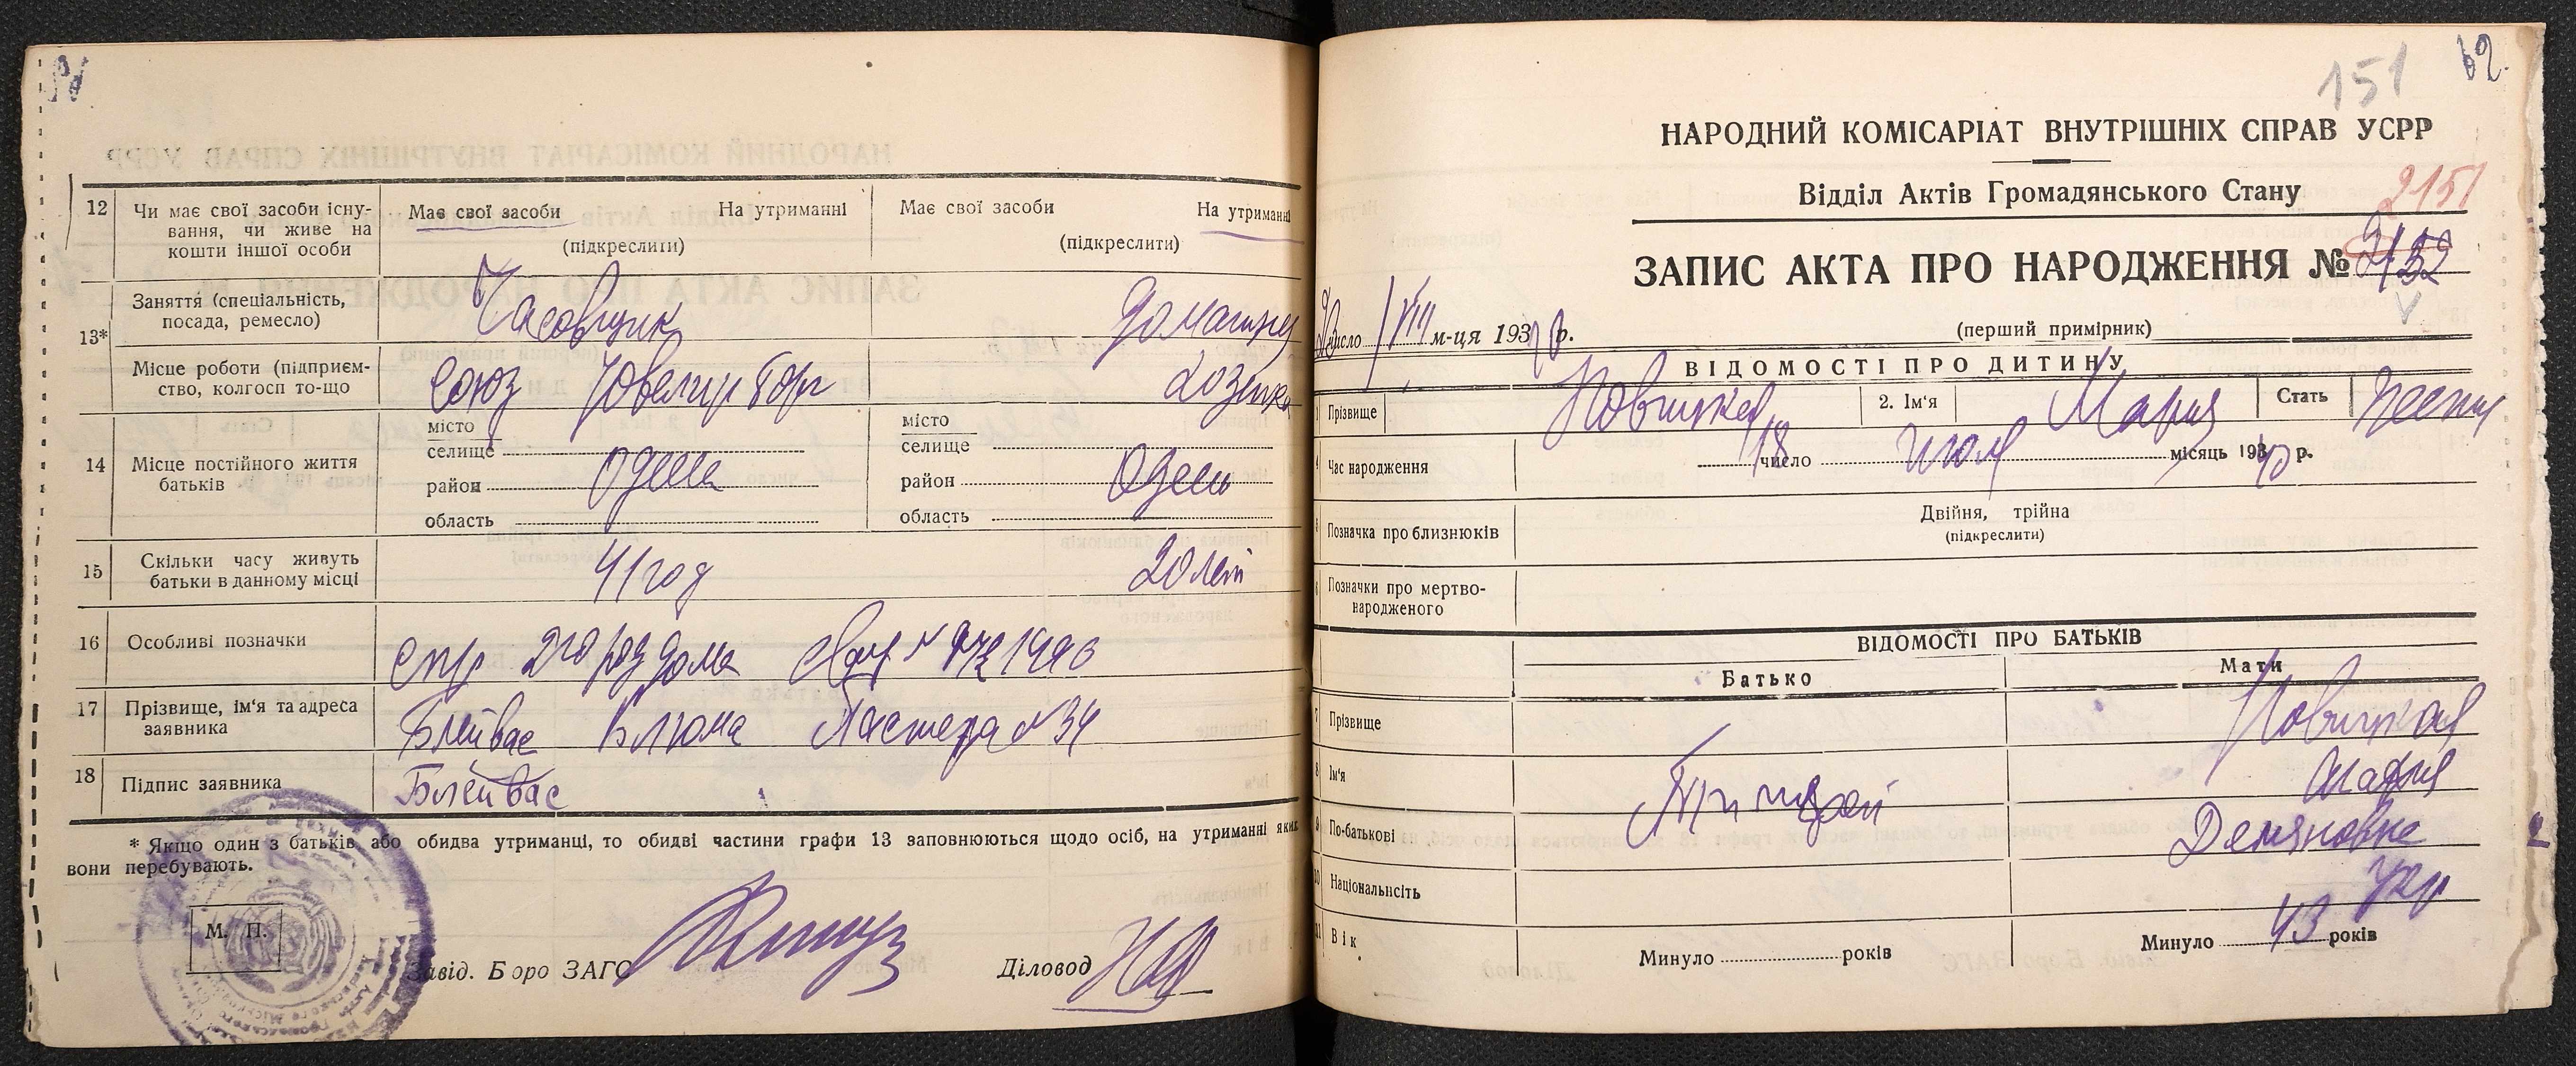 12 Чи має свої засоби існу-
вання, чи живе на
кошти іншої особи
Має свої засоби На утриманні
(підкреслити)
Має свої засоби На утриманні
(підкреслити)
13* Заняття (спеціальність,
посада, ремесло)
Часовщик
домашняя
Місце роботи (підприєм-
ство, колгосп то-що
Союз Ювелир Торг
хозяйка
14 Місце постійного життя
батьків
місто
селище
район
область
Одесса
місто
селище
район
область
Одесса
15 Скільки часу живуть
батьки в данному місці
41 год
20 лет
16 Особливі позначки
спр 2го род дома
17 Прізвище, ім'я та адреса
заявника
Блейвас Блюма Пастера № 34
18 Підпис заявника
Блейвас
* Якщо один з батьків або обидва утриманці, то обидві частини графи 13 заповнюються щодо осіб, на утриманні яких
вони перебувають.
М. П.
Завід. Бюро ЗАГС
Діловод
151
62.
НАРОДНИЙ КОМІСАРІАТ ВНУТРІШНІХ СПРАВ УСРР
Відділ Актів Громадянського Стану
2151
ЗАПИС АКТА ПРО НАРОДЖЕННЯ №
число VIII м-ця 193 р.
(перший примірник)
ВІДОМОСТІ ПРО ДИТИНУ
Прізвище
Новицкая
2. Ім'я
Мария
Стать
Час народження
18 число июля місяць 1940 р.
Позначка про близнюків
Двійня, трійна
(підкреслити)
Позначки про мертво-
народженого
ВІДОМОСТІ ПРО БАТЬКІВ
Батько
Мати
7 Прізвище
Новицкая
8 Ім'я
Агафия
9 По-батькові
Демяновна
10 Національність
Укр
11 Вік
Минуло років
Минуло 43 років